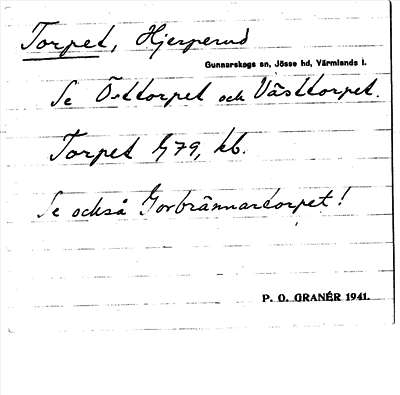 Torpet, Hjerperud
Gunnarskogs sn, Jösse hd, Värmlands l.
Se Östtorpet och Västtorpet.
Torpet 1779, kb.
Se också Torbrännartorpet!
P. O. GRANÉR 1941.